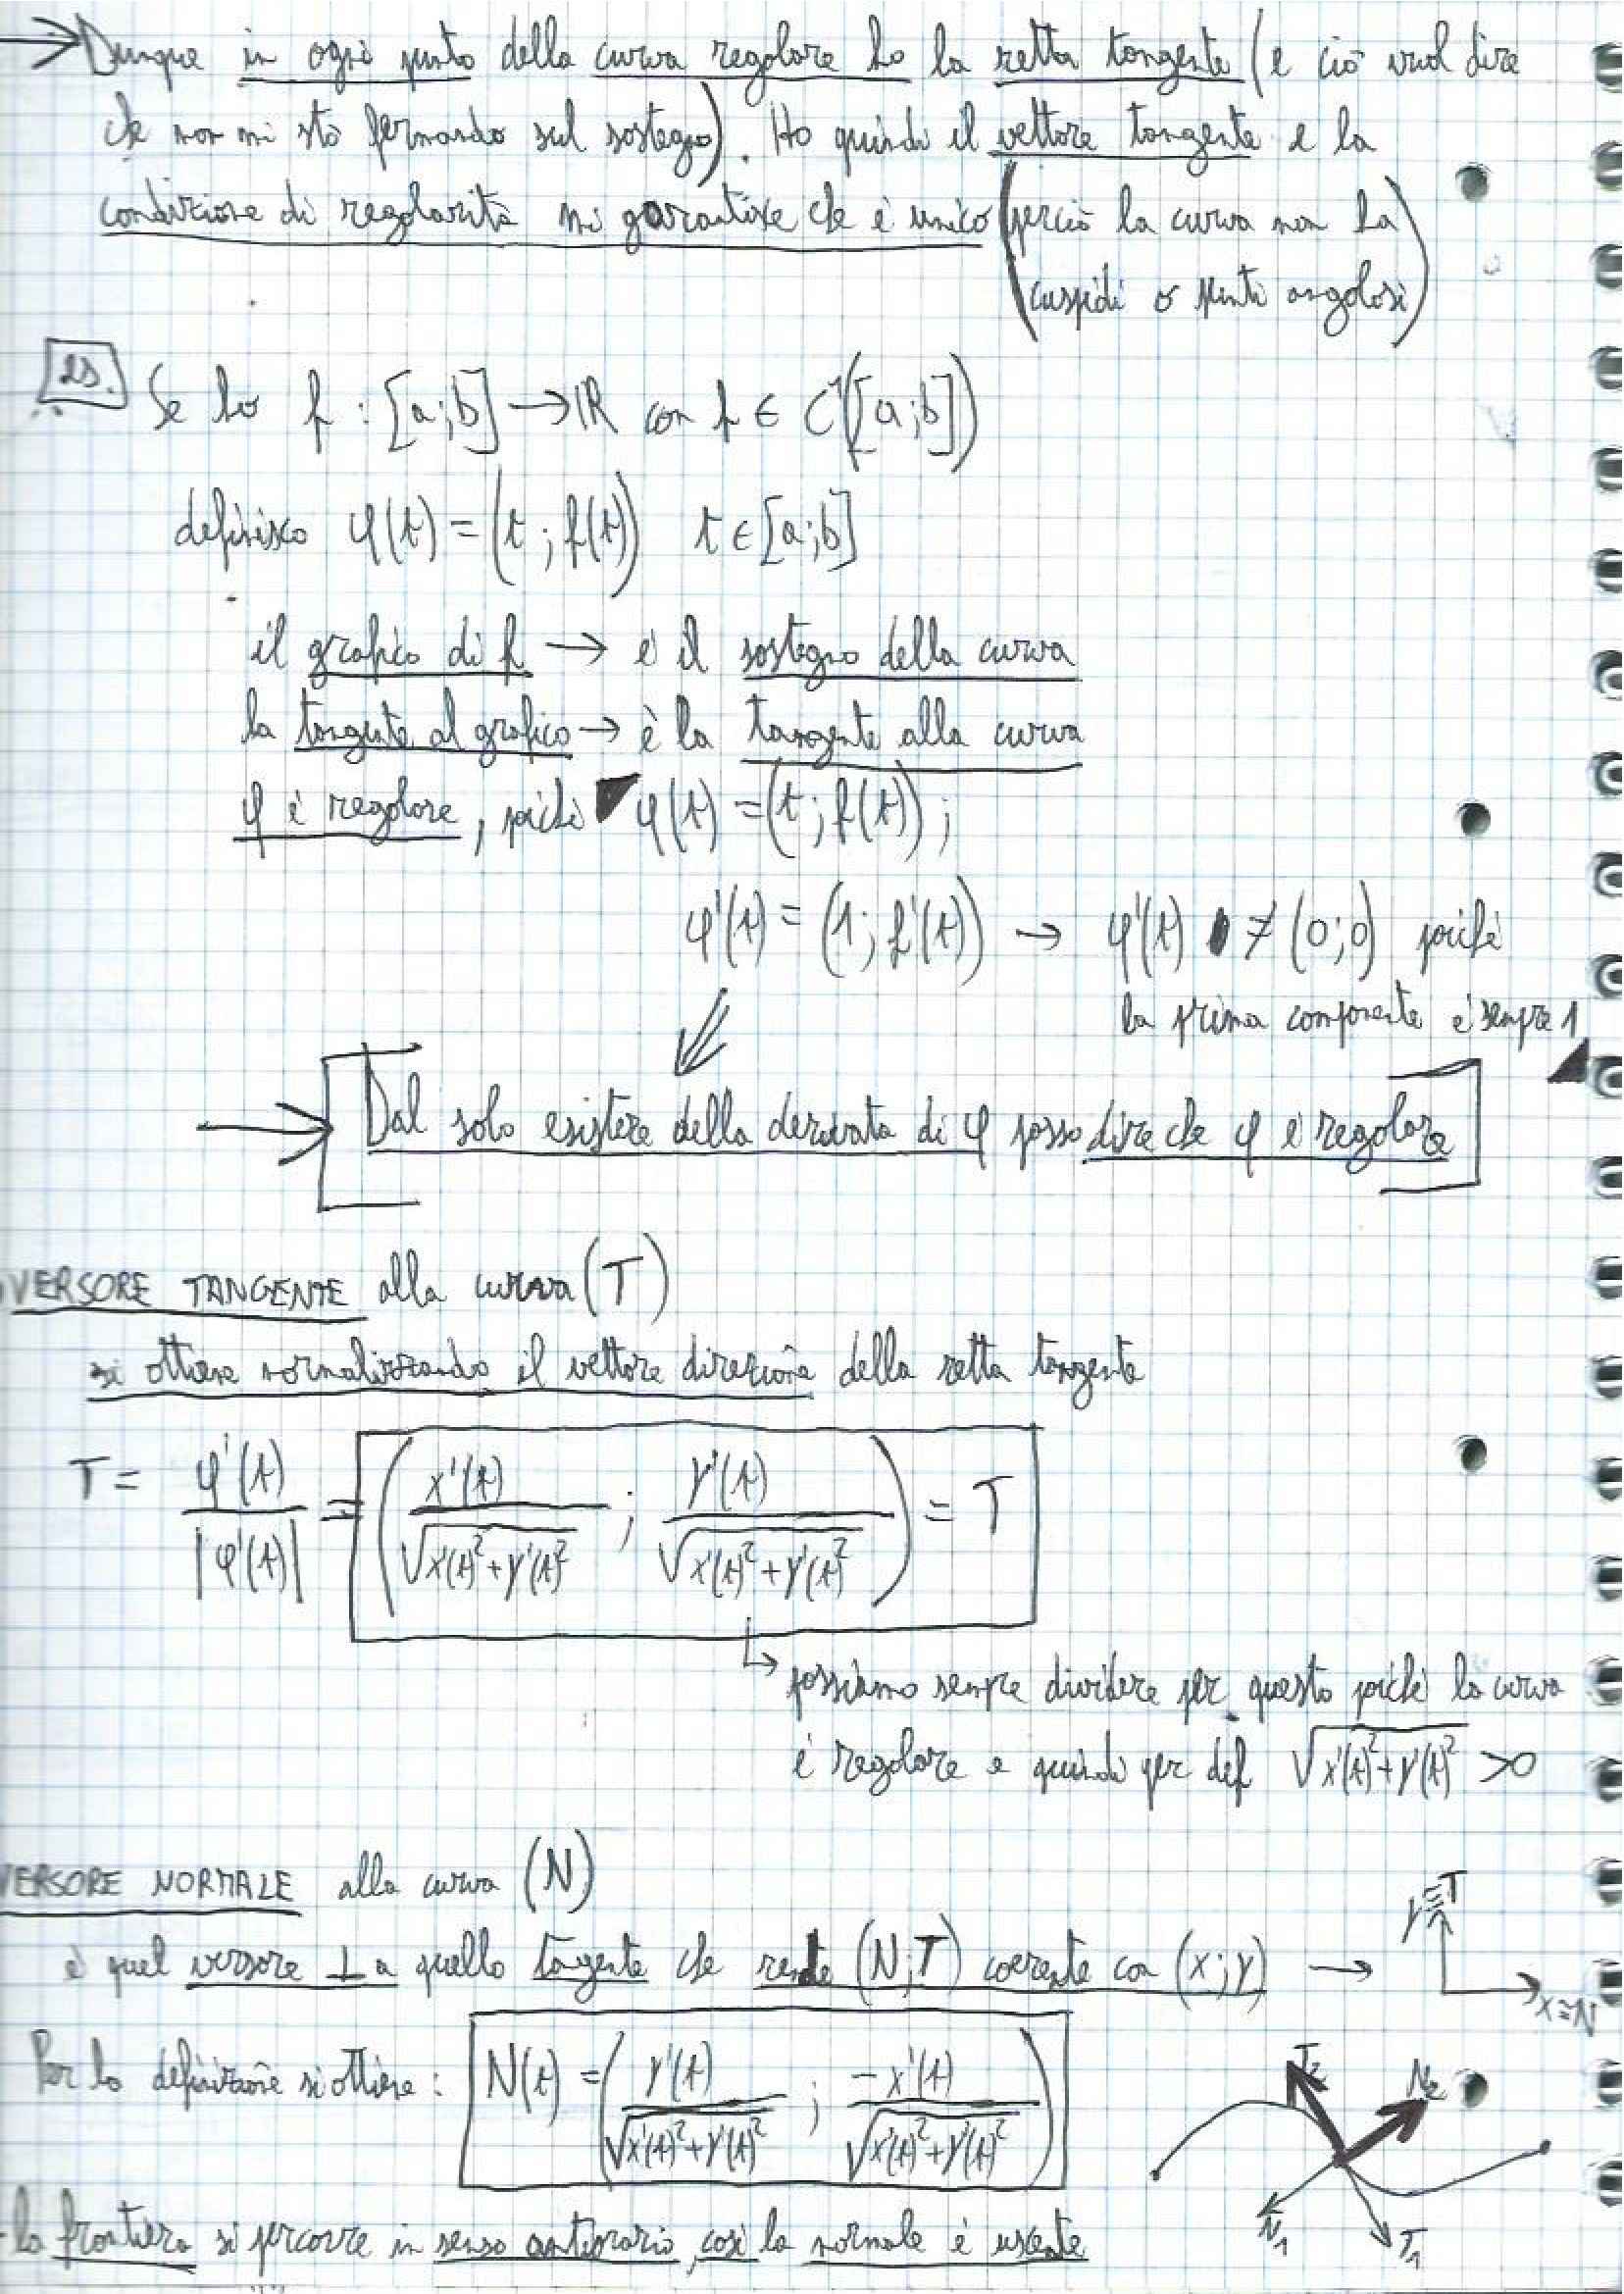 → Dunque in ogni punto della curva regolare ho la retta tangente (e ciò vuol dire
che non mi sto fermando sul sostegno). Ho quindi il vettore tangente e la
condizione di regolarità mi garantisce che è unico (perciò la curva non ha
cuspidi o punti angolosi)
es. Se ho f : [a;b] → ℝ con f ∈ C¹([a;b])
definisco φ(t) = (t ; f(t)) t ∈ [a;b]
il grafico di f → è il sostegno della curva
la tangente al grafico → è la tangente alla curva
φ è regolare, poiché φ(t) = (t ; f(t)) ;
φ'(t) = (1 ; f'(t)) → φ'(t) ≠ (0;0) poiché
la prima componente è sempre 1
→ Dal solo esistere della derivata di φ posso dire che φ è regolare
VERSORE TANGENTE alla curva (T)
si ottiene normalizzando il vettore direzione della retta tangente
T = φ'(t) / |φ'(t)| = ( x'(t) / √x'(t)²+y'(t)² ; y'(t) / √x'(t)²+y'(t)² ) = T
↳ possiamo sempre dividere per questo poiché la curva
è regolare e quindi per def √x'(t)²+y'(t)² >0
VERSORE NORMALE alla curva (N)
y≡T
è quel versore ⊥ a quello tangente che rende (N;T) coerente con (x;y) →
x≡N
Per la definizione si ottiene : N(t) = ( y'(t) / √x'(t)²+y'(t)² ; -x'(t) / √x'(t)²+y'(t)² )
T₂ N₂
N₁ T₁
- la frontiera si percorre in senso antiorario, così la normale è uscente